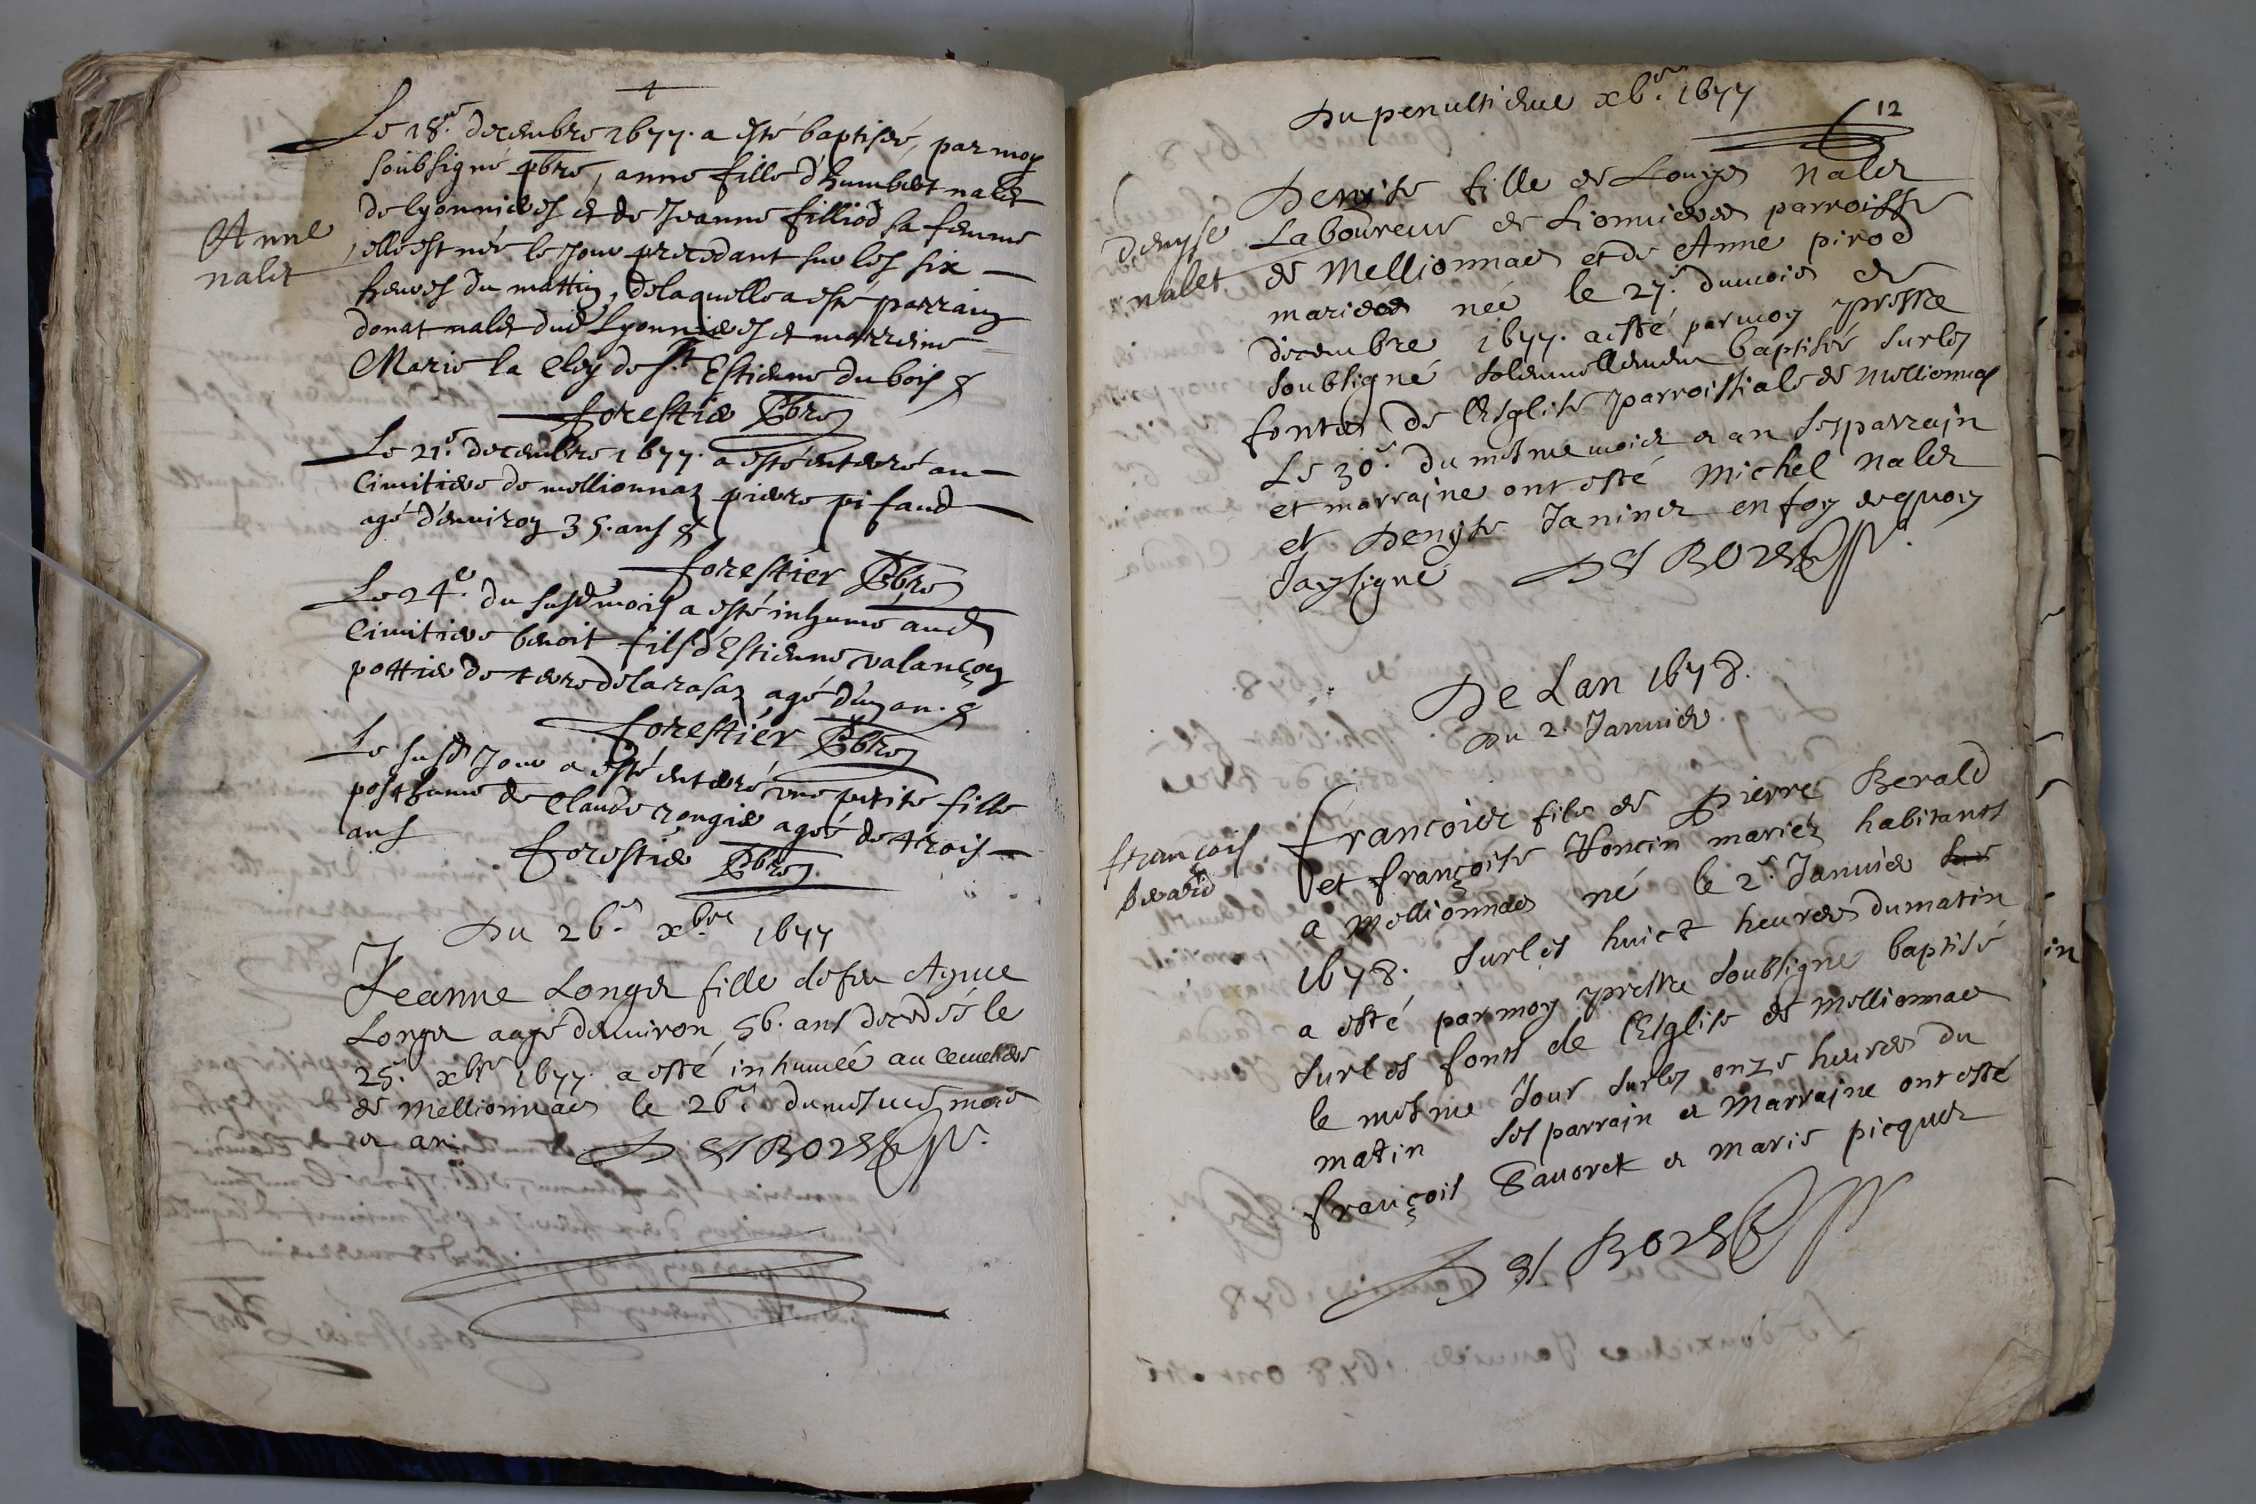 Le 18.e decembre 1677. a esté baptisée, par moy
soubsigné pbre, anne fille d'humbert nalet
de lyonnieres et de Jeanne filliod sa femme
Anne
nalet
elle est née le jour precedant sur les six
heures du mattin, de laquelle a esté parrain
donat nalet dud Lyonnieres et marreine
Marie la Cley de st Estienne du bois
forestier Pbre
Le 21.e decembre 1677. a esté enterré au
Cimitiere de mellionnaz pierre pifaud
agé d'enuiron 35. ans
forestier Pbre
Le 24.e du susd mois a esté inhumé aud
Cimitiere benoit fils d'Estienne valançon
pottier de terre de la rasaz agé d'un an.
forestier Pbre
Le susd Jour a esté enterré une petite fille
posthume de Claude rongier agée de trois
ans
forestier Pbre
Du 26.e xbre 1677
Jeanne Longet fille de feu Ayme
Longet aagé denuiron 56. ans decedée le
25.e xbre 1677. a esté inhumée au cemetiere
de Mellionnaes le 26.e du mesme mois
et an.
DesBordes
Du penultieme xb.re 1677
12
Denise fille de Louys Nalet
denyse
nallet
Laboureur de Lionnieres parroisse
de Mellionnaes et de Anne pirod
mariés née le 27.e du mois de
decembre 1677. a esté par moy prestre
soubsigné solemnellement baptisée sur les
fonts de l'Esglise parroissiale de Mellionnas
Le 30.e du mesme mois et an ses parrain
et marraine ont esté Michel Nalet
et Denyse Janinet en foy de quoy
Jay signé DesBordes
De Lan 1678.
Du 2. Januier
françois
berard
francois fils de Pierre Berald
et françoise Poncin mariéz habitants
a Mellionnaes né le 2.e Januier
1678. sur les huict heures du matin
a esté par moy prestre soubsigné baptisé
sur les fonts de l'Esglise de Mellionnaes
le mesme Jour sur les onze heures du
matin ses parrain et Marraine ont esté
françois Sauoret et Marie picquet
DesBordes